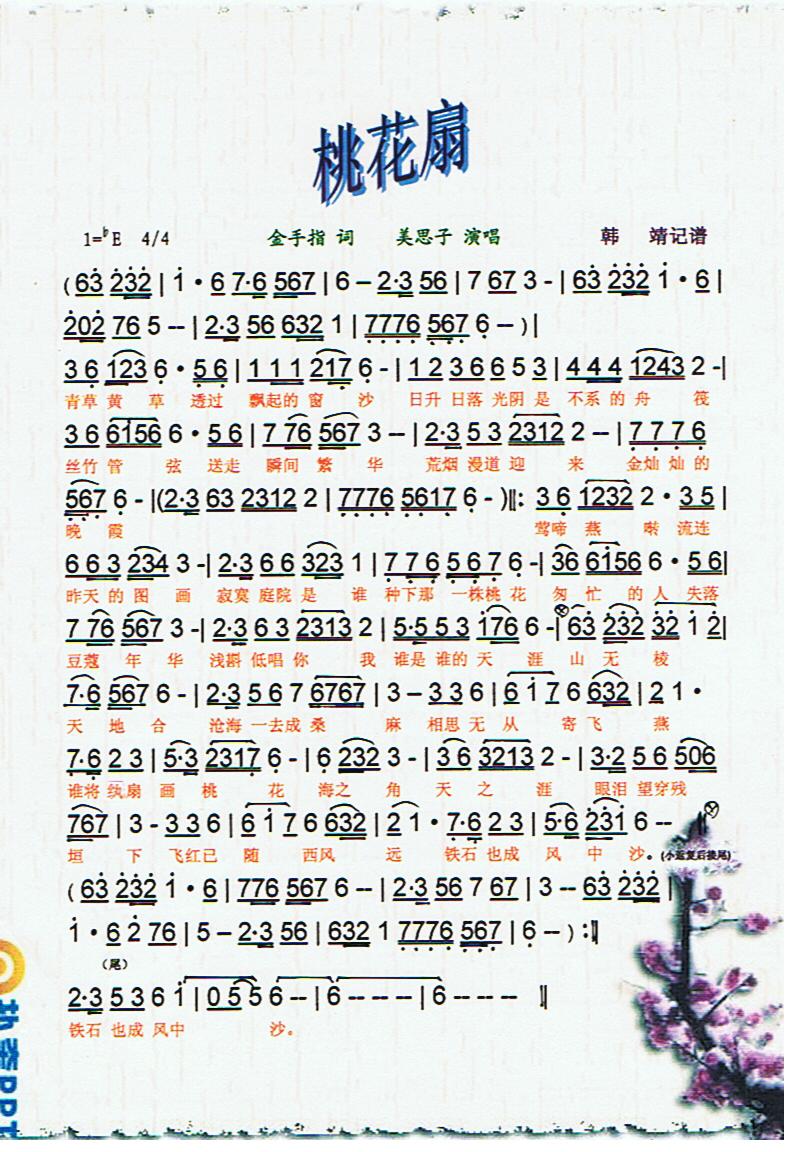 桃花扇
1=♭E 4/4 金手指 词 美思子 演唱 韩 靖记谱
(63 232 | 1·6 7·6 567 | 6 – 2·3 56 | 7 67 3 - | 63 232 1·6 |
202 76 5 -- | 2·3 56 632 1 | 7776 567 6 -- )|
3 6 123 6·5 6 | 1 1 1 217 6 - | 1 2 3 6 6 5 3 | 4 4 4 1243 2 -|
青草 黄 草 透过 飘起的 窗 沙 日升 日落 光阴 是 不系 的 舟 筏
3 6 6156 6·5 6 | 7 76 567 3 -- | 2·3 5 3 2312 2 -- | 7 7 7 6
丝竹 管 弦 送走 瞬间 繁 华 荒烟 漫道 迎 来 金灿 灿 的
567 6 - |(2·3 63 2312 2 | 7776 5617 6 - )‖: 3 6 1232 2·3 5 |
晚 霞 莺啼 燕 啭 流连
6 6 3 234 3 -| 2·3 6 6 323 1 | 7 7 6 5 6 7 6 -| 36 6156 6·5 6|
昨天 的 图 画 寂寞 庭院 是 谁 种下那 一株桃 花 匆 忙 的 人 失落
7 76 567 3 -| 2·3 6 3 2313 2 | 5·5 5 3 176 6 -| 63 232 32 1 2|
豆蔻 年 华 浅斟 低唱 你 我 谁是 谁的 天 涯 山 无 棱
7·6 567 6 - | 2·3 5 6 7 6767 | 3 – 3 3 6 | 6 1 7 6 632 | 2 1 ·
天 地 合 沧海 一去成 桑 麻 相思 无 从 寄 飞 燕
7·6 2 3 | 5·3 2317 6 - | 6 232 3 - | 3 6 3213 2 - | 3·2 5 6 506
谁将 纨扇 画 桃 花 海之 角 天 之 涯 眼泪 望穿 残
767 | 3 - 3 3 6 | 6 1 7 6 632 | 2 1 · 7·6 2 3 | 5·6 231 6 --
垣 下 飞红已 随 西风 远 铁石 也成 风 中 沙。(小返复后接尾)
(63 232 1·6 | 776 567 6 -- | 2·3 56 7 67 | 3 -- 63 232 |
1·6 2 76 | 5 – 2·3 56 | 632 1 7776 567 | 6 -- ) :‖
(尾)
2·3 5 3 6 1 | 0 5 5 6 -- | 6 - - - - | 6 -- -- ‖
铁石 也成 风中 沙。